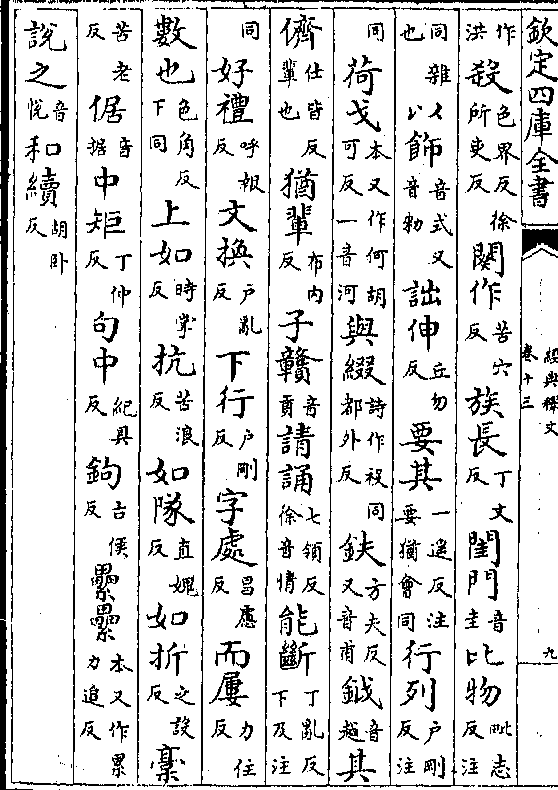 欽定四庫全書
經典釋文
卷十三
九
作洪殺色界反徐所吏反闋作苦穴反族長丁丈反閨門音圭比物毗志反注
同雜也以飾音式又音勅詘伸丘勿反要其一遥反注要猶會同行列户剛反注
同荷戈本又作何胡可反一音河與綴詩作祋同都外反鈇方夫反又音甫鉞音越其
儕仕皆反輩也猶輩布内反子贛音貢請誦七領反徐音情能斷丁亂反下及注
同好禮呼報反文換户亂反下行户剛反字處昌慮反而屢力住反
數也色角反下同上如時掌反抗苦浪反如隊直媿反如折之設反槀
苦老反倨音據中矩丁仲反句中紀具反鉤古侯反纍纍本又作累力追反
說之音悅和續胡卧反